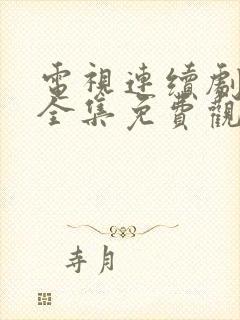 電視連續劇
全集免費觀
寺月